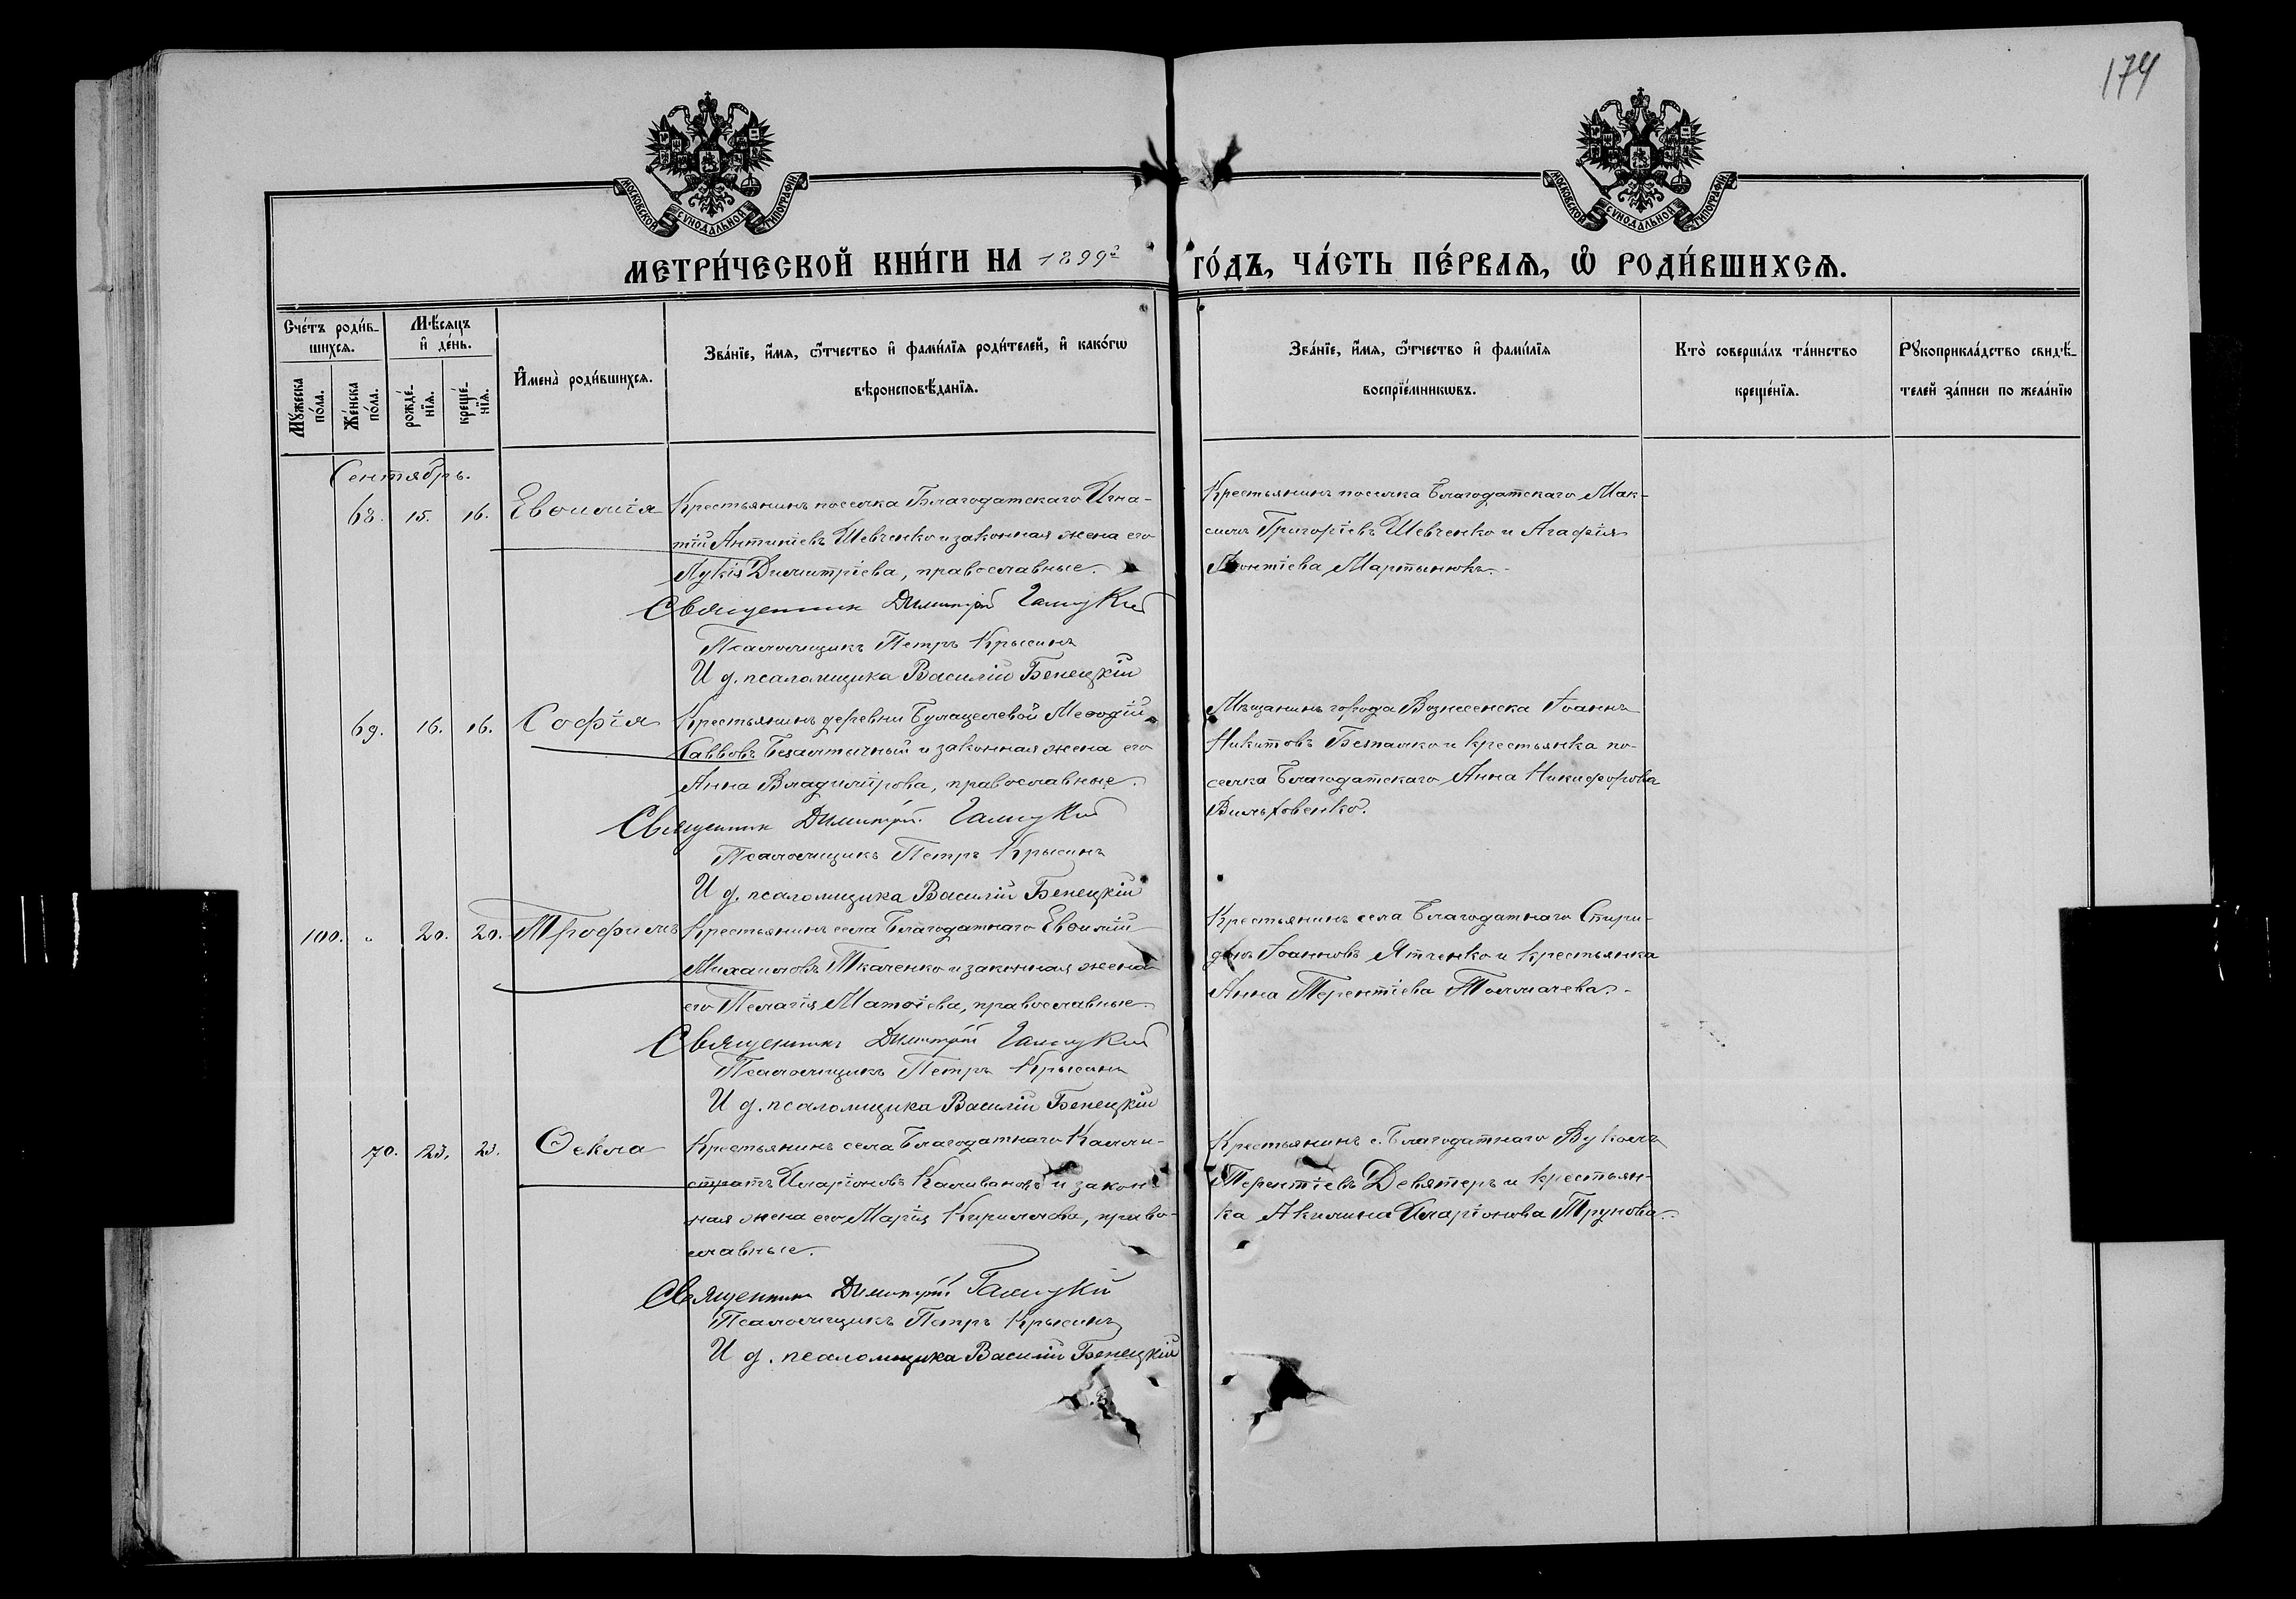 174
МОСКОВСКОЙ СѴНОДАЛЬНОЙ ТИПОГРАФІИ
МОСКОВСКОЙ СѴНОДАЛЬНОЙ ТИПОГРАФІИ
МЕТРИ́ЧЕСКОЙ КНИ́ГИ НА 1899г ГО́ДЪ, ЧА́СТЬ ПЕ́РВАЯ, Ѡ РОДИ́ВШИХСЯ.
Сче́тъ роди́в-
шихся.
Мꙋ́жеска
по́ла.
Же́нска
по́ла.
Мѣ́сяцъ
и҆ де́нь.
рожде́-
нїя.
креще́-
нїя.
И҆мена̀ роди́вшихся.
Зва́нїе, и҆́мя, ѻ҆́тчество и҆ фами́лїя роди́телей, и҆ како́гѡ
вѣроисповѣ́данїя.
Зва́нїе, и҆́мя, ѻ҆́тчество и҆ фами́лїя
воспрїе́мникѡвъ.
Кто̀ соверша́лъ та́инство
креще́нїя.
Рꙋкоприкла́дство свидѣ́-
телей за́писи по жела́нїю
Сентябрь.
68. 15. 16. Евѳимія Крестьянинъ поселка Благодатскаго Игна-
тій Антипіевъ Шевченко и законная жена его
Лукія Димитріева, православные.
Священникъ Димитрій Галицкій
Псаломщикъ Петръ Крысинъ
И д. псаломщика Василій Бенецкій
Крестьянинъ поселка Благодатскаго Мак-
симъ Григоріевъ Шевченко и Агафія
Леонтіева Мартынюкъ.
69. 16. 16. Софія Крестьянинъ деревни Булацелевой Меѳодій
Саввовъ Безалтычный и законная жена его
Анна Владимірова, православные.
Священникъ Димитрій Галицкій
Псаломщикъ Петръ Крысинъ
И д. псаломщика Василій Бенецкій
Мѣщанинъ города Вознесенска Іоаннъ
Никитовъ Безпалко и крестьянка по-
селка Благодатскаго Анна Никифорова
Вильховенко.
100. „ 20. 20. Трофимъ Крестьянинъ села Благодатнаго Евѳимій
Михаиловъ Ткаченко и законная жена
его Пелагія Матѳіева, православные.
Священникъ Димитрій Галицкій
Псаломщикъ Петръ Крысинъ
И д. псаломщика Василій Бенецкій
Крестьянинъ села Благодатнаго Спири-
донъ Іоанновъ Ятченко и крестьянка
Анна Терентіева Толмачева.
70. 23. 23. Ѳекла Крестьянинъ села Благодатнаго Калли-
стратъ Иларіоновъ Каливановъ и закон-
ная жена его Марія Кириллова, право-
славные.
Священникъ Димитрій Галицкій
Псаломщикъ Петръ Крысинъ
И д. псаломщика Василій Бенецкій
Крестьянинъ с. Благодатнаго Вуколъ
Терентіевъ Девятеръ и крестьян-
ка Акилина Иларіонова Трунова.